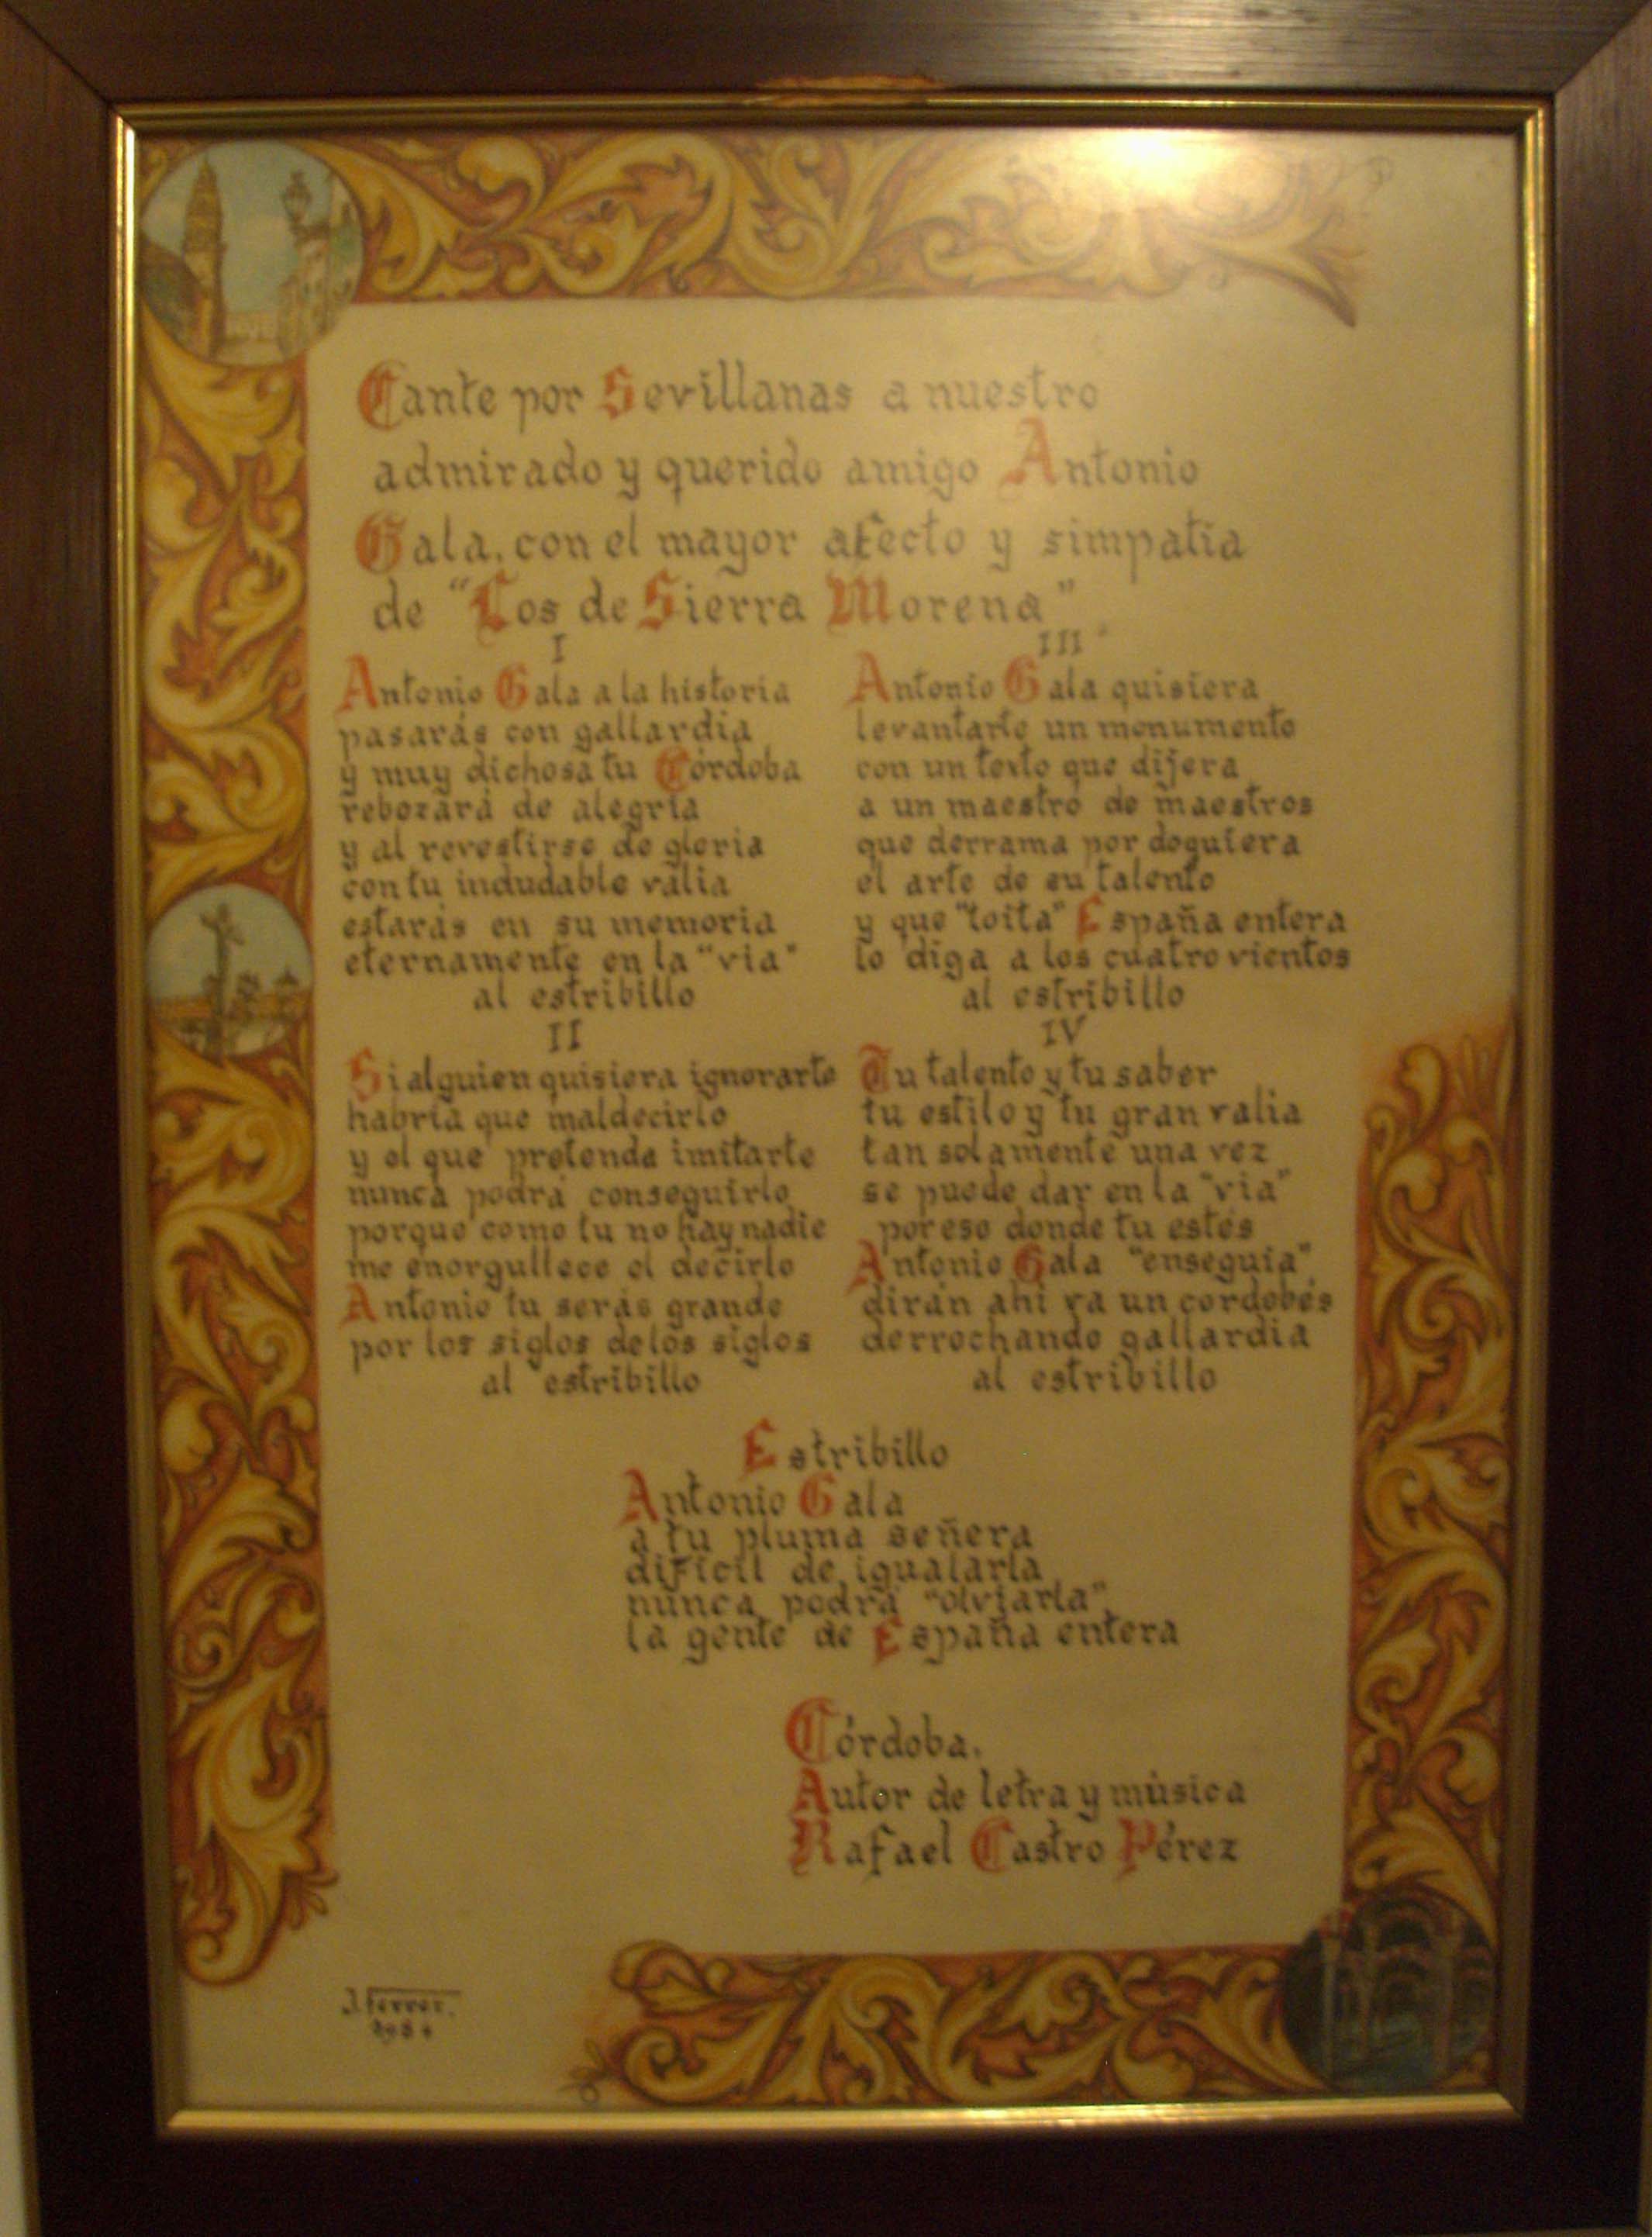 Cante por Sevillanas a nuestro
admirado y querido amigo Antonio
Gala, con el mayor afecto y simpatia
de "Los de Sierra Morena"
I
Antonio Gala a la historia
pasarás con gallardia
y muy dichosa tu Córdoba
rebozará de alegria
y al revestirse de gloria
con tu indudable valia
estarás en su memoria
eternamente en la "via"
al estribillo
II
Si alguien quisiera ignorarte
habria que maldecirlo
y el que pretenda imitarte
nunca podrá conseguirlo
porque como tu no hay nadie
me enorgullece el decirlo
Antonio tu serás grande
por los siglos de los siglos
al estribillo
III
Antonio Gala quisiera
levantarte un monumento
con un texto que dijera
a un maestro de maestros
que derrama por doquiera
el arte de su talento
y que "toita" España entera
lo diga a los cuatro vientos
al estribillo
IV
Tu talento y tu saber
tu estilo y tu gran valia
tan solamente una vez
se puede dar en la "via"
por eso donde tu estés
Antonio Gala "enseguia"
dirán ahi va un cordobés
derrochando gallardia
al estribillo
Estribillo
Antonio Gala
a tu pluma señera
dificil de igualarla
nunca podrá "olviarla"
la gente de España entera
Córdoba.
Autor de letra y música
Rafael Castro Pérez
J. Ferrer.